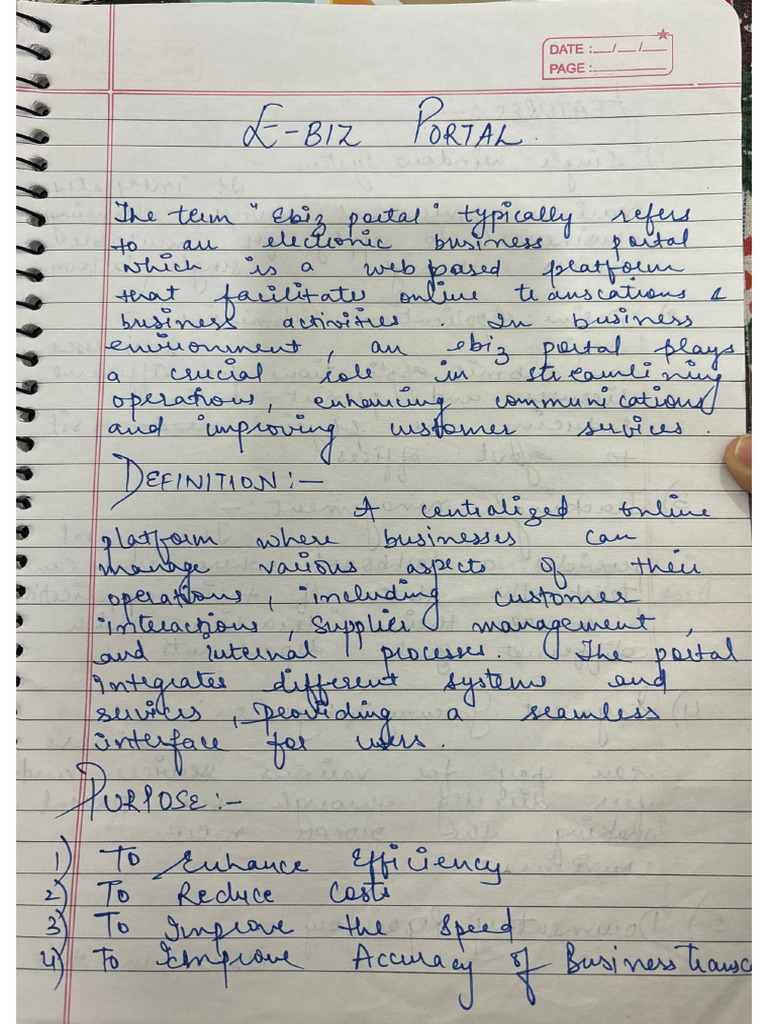 DATE :__/__/__
PAGE :
E-BIZ PORTAL.
The term "Ebiz portal" typically refers
to an electronic business portal
which is a web based platform
that facilitates online transcations &
business activities. In business
environment, an ebiz portal plays
a crucial role in streamlining
operations, enhancing communications
and improving customer services.
DEFINITION :-
A centralized online
platform where businesses can
manage various aspects of their
operations, including customer
interactions, supplier management,
and internal processes. The portal
integrates different systems and
services, providing a seamless
interface for users.
PURPOSE :-
1) To Enhance Efficiency
2) To Reduce Costs
3) To Improve the Speed
4) To Improve Accuracy of Business Transc